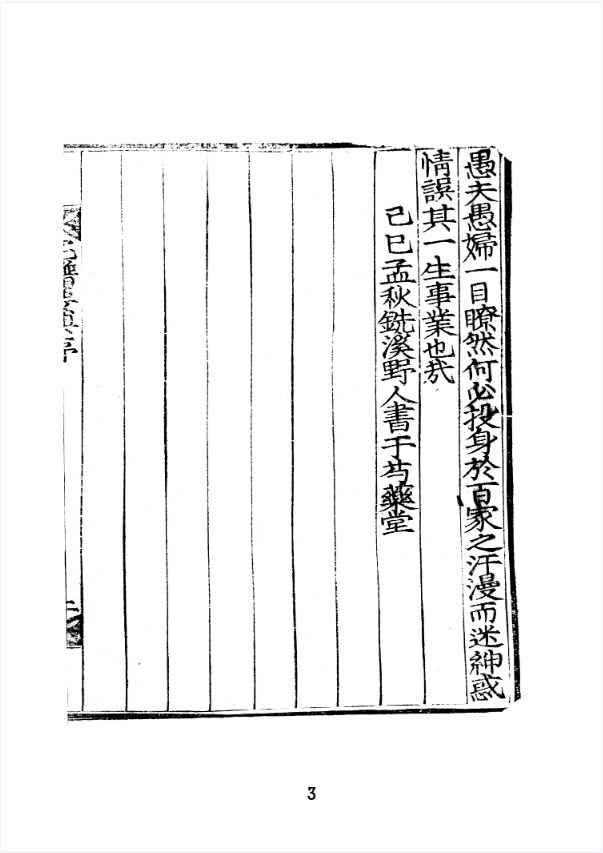 愚夫愚婦一目瞭然何必投身於百家之汗漫而迷紳惑
情誤其一生事業也㢤
己巳孟秋銑溪野人書于芍藥堂
二
3